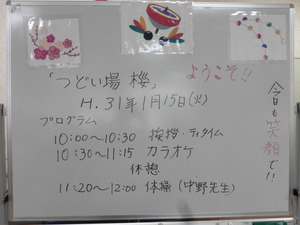 「つどい場 櫻」
ようこそ!!
H.31年1月15日(火)
今日も笑顔で!!
プログラム
10:00〜10:30 挨拶・ティタイム
10:30〜11:15 カラオケ
休憩
11:20〜12:00 体操(中野先生)